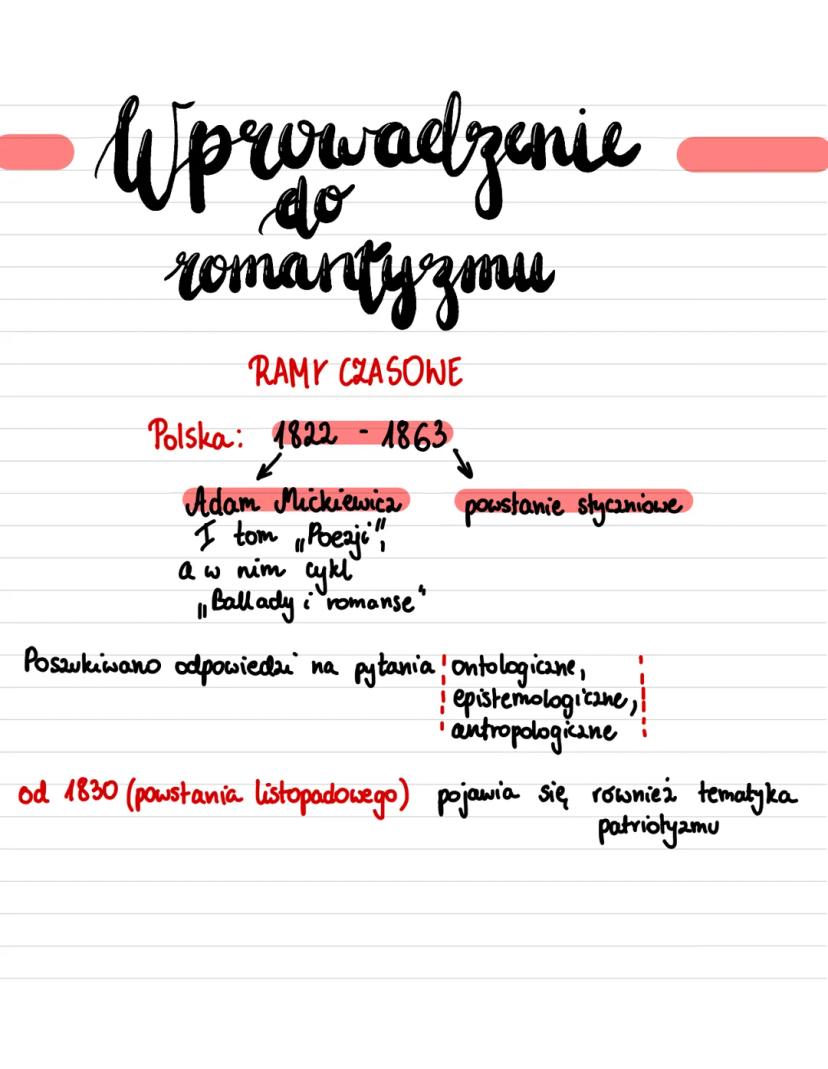 Wprowadzenie
do
romantyzmu
RAMY CZASOWE
Polska: 1822 - 1863
Adam Mickiewicz powstanie styczniowe
I tom „Poezji",
a w nim cykl
„Ballady i romanse"
Poszukiwano odpowiedzi na pytania ontologiczne,
epistemologiczne,
antropologiczne
od 1830 (powstania listopadowego) pojawia się również tematyka
patriotyzmu